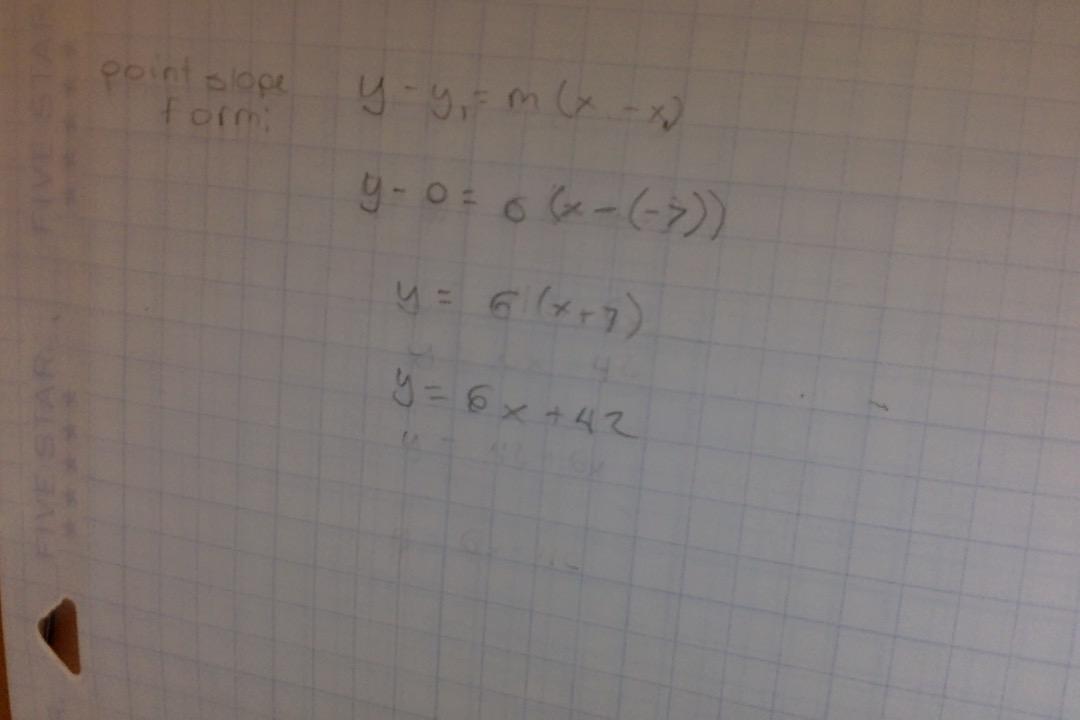 point slope
form:
y - y₁ = m(x - x₁)
y - 0 = 6(x - (-7))
y = 6(x+7)
y = 6x + 42
FIVE STAR
FIVE STAR